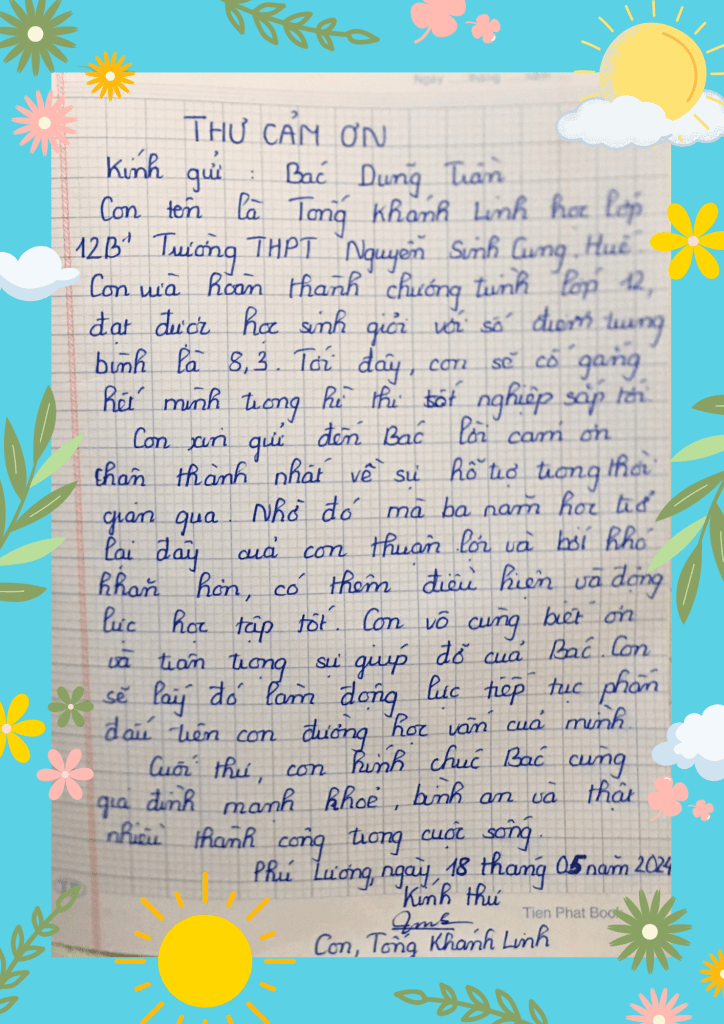 Ngày tháng năm
THƯ CẢM ƠN
Kính gửi : Bác Dung Trần
Con tên là Tống Khánh Linh học lớp
12B1 Trường THPT Nguyễn Sinh Cung, Huế.
Con vừa hoàn thành chương trình lớp 12,
đạt được học sinh giỏi với số điểm trung
bình là 8,3. Tới đây, con sẽ cố gắng
hết mình trong kì thi tốt nghiệp sắp tới
Con xin gửi đến Bác lời cảm ơn
chân thành nhất về sự hỗ trợ trong thời
gian qua. Nhờ đó mà ba năm học trở
lại đây của con thuận lợi và bớt khó
khăn hơn, có thêm điều kiện và động
lực học tập tốt. Con vô cùng biết ơn
và trân trọng sự giúp đỡ của Bác. Con
sẽ lấy đó làm động lực tiếp tục phấn
đấu trên con đường học vấn của mình.
Cuối thư, con kính chúc Bác cùng
gia đình mạnh khoẻ, bình an và thật
nhiều thành công trong cuộc sống.
Phú Lương, ngày 18 tháng 05 năm 2024
Kính thư
Tien Phat Book
Con, Tống Khánh Linh